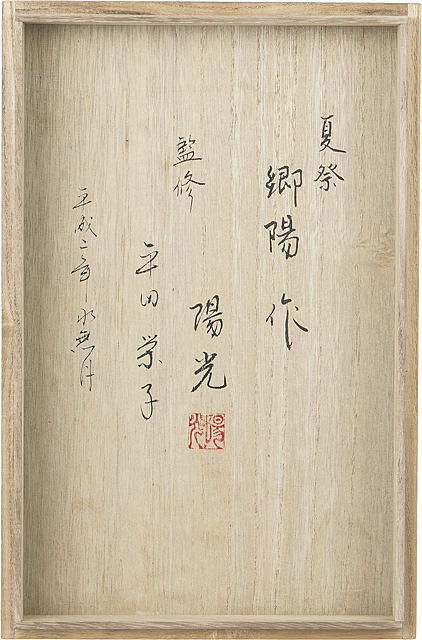 夏祭
郷陽作
監修 陽光
陽光
平田栄子
平成二年水無月